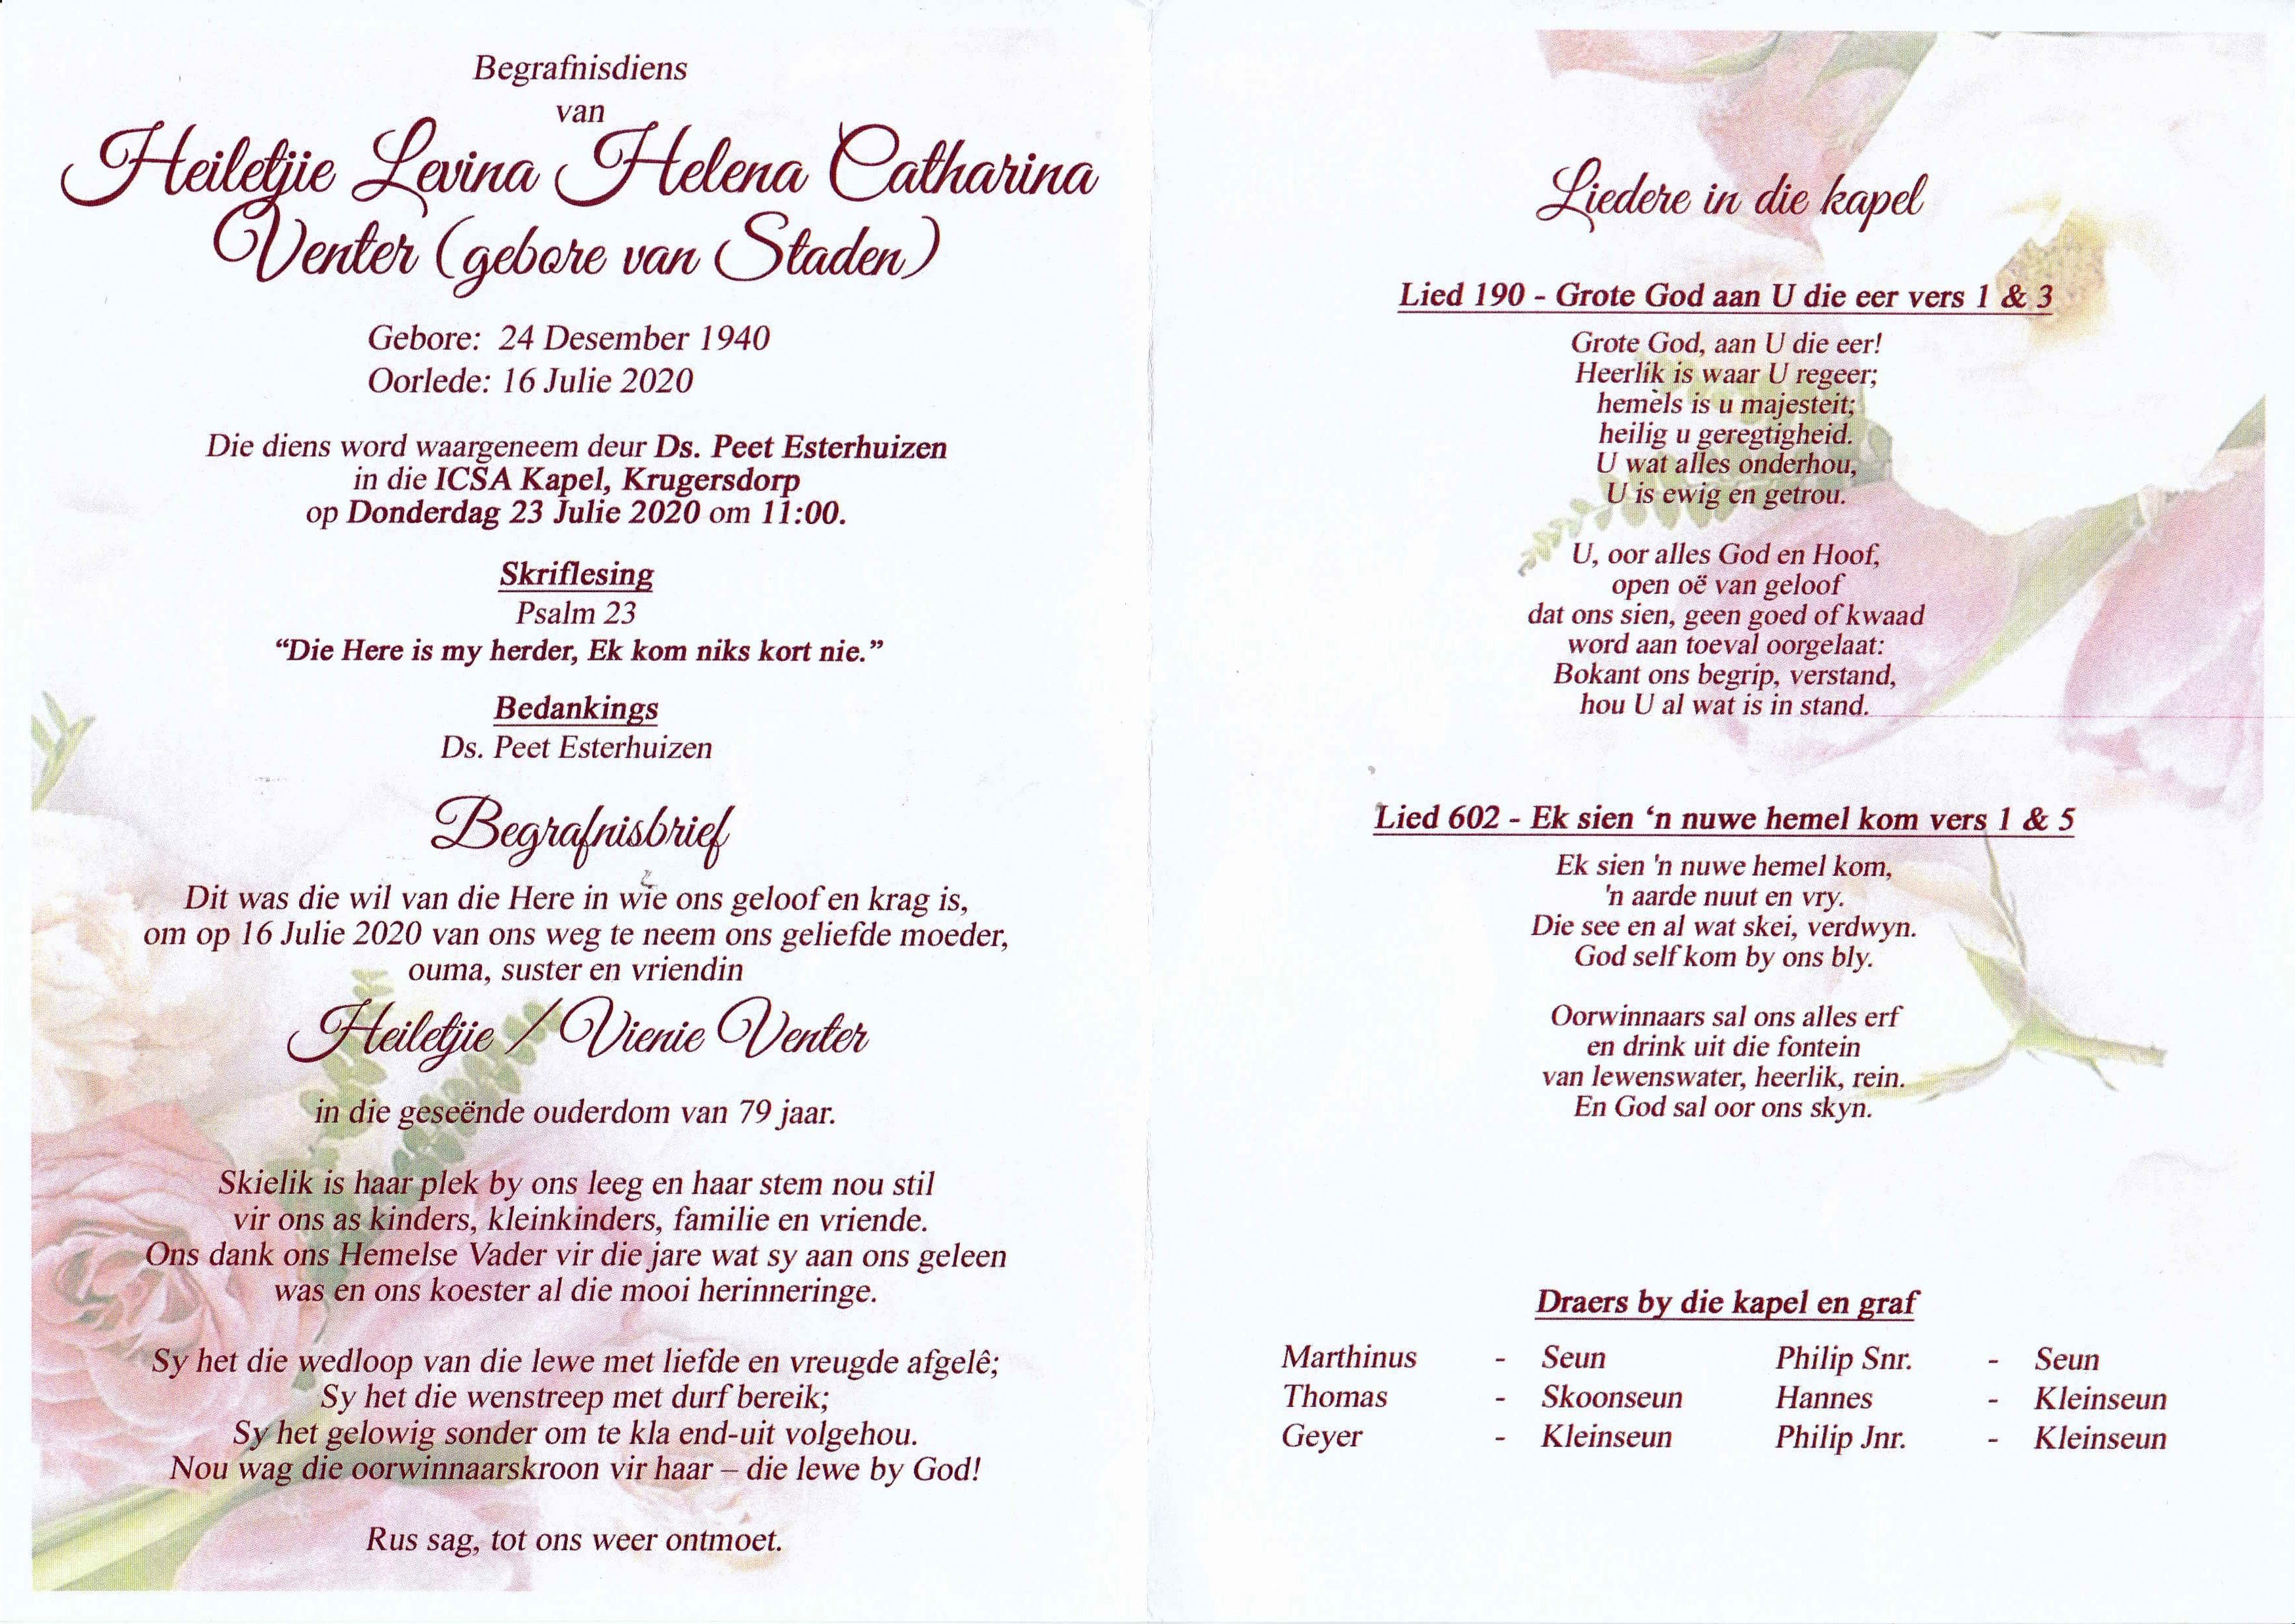 Begrafnisdiens
van
Heiletjie Levina Helena Catharina
Venter (gebore van Staden)
Gebore: 24 Desember 1940
Oorlede: 16 Julie 2020
Die diens word waargeneem deur Ds. Peet Esterhuizen
in die ICSA Kapel, Krugersdorp
op Donderdag 23 Julie 2020 om 11:00.
Skriflesing
Psalm 23
“Die Here is my herder, Ek kom niks kort nie.”
Bedankings
Ds. Peet Esterhuizen
Begrafnisbrief
Dit was die wil van die Here in wie ons geloof en krag is,
om op 16 Julie 2020 van ons weg te neem ons geliefde moeder,
ouma, suster en vriendin
Heiletjie / Vienie Venter
in die geseënde ouderdom van 79 jaar.
Skielik is haar plek by ons leeg en haar stem nou stil
vir ons as kinders, kleinkinders, familie en vriende.
Ons dank ons Hemelse Vader vir die jare wat sy aan ons geleen
was en ons koester al die mooi herinneringe.
Sy het die wedloop van die lewe met liefde en vreugde afgelê;
Sy het die wenstreep met durf bereik;
Sy het gelowig sonder om te kla end-uit volgehou.
Nou wag die oorwinnaarskroon vir haar – die lewe by God!
Rus sag, tot ons weer ontmoet.
Liedere in die kapel
Lied 190 - Grote God aan U die eer vers 1 & 3
Grote God, aan U die eer!
Heerlik is waar U regeer;
hemels is u majesteit;
heilig u geregtigheid.
U wat alles onderhou,
U is ewig en getrou.
U, oor alles God en Hoof,
open oë van geloof
dat ons sien, geen goed of kwaad
word aan toeval oorgelaat:
Bokant ons begrip, verstand,
hou U al wat is in stand.
Lied 602 - Ek sien ‘n nuwe hemel kom vers 1 & 5
Ek sien 'n nuwe hemel kom,
'n aarde nuut en vry.
Die see en al wat skei, verdwyn.
God self kom by ons bly.
Oorwinnaars sal ons alles erf
en drink uit die fontein
van lewenswater, heerlik, rein.
En God sal oor ons skyn.
Draers by die kapel en graf
Marthinus - Seun Philip Snr. - Seun
Thomas - Skoonseun Hannes - Kleinseun
Geyer - Kleinseun Philip Jnr. - Kleinseun